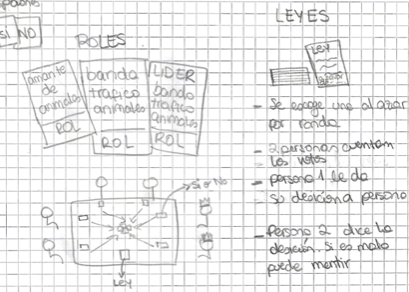 SI NO
ROLES
amante
de
animales
ROL
banda
trafico
animales
ROL
LIDER
banda
trafico
animales
ROL
Si o No
LEY
LEYES
LEY
- Se escoge una al azar
por ronda
- 2 personas cuentan
los votos
- persona 1 le da
su desicion a persona
- Persona 2 dice la
desición. si es malo
puede mentir